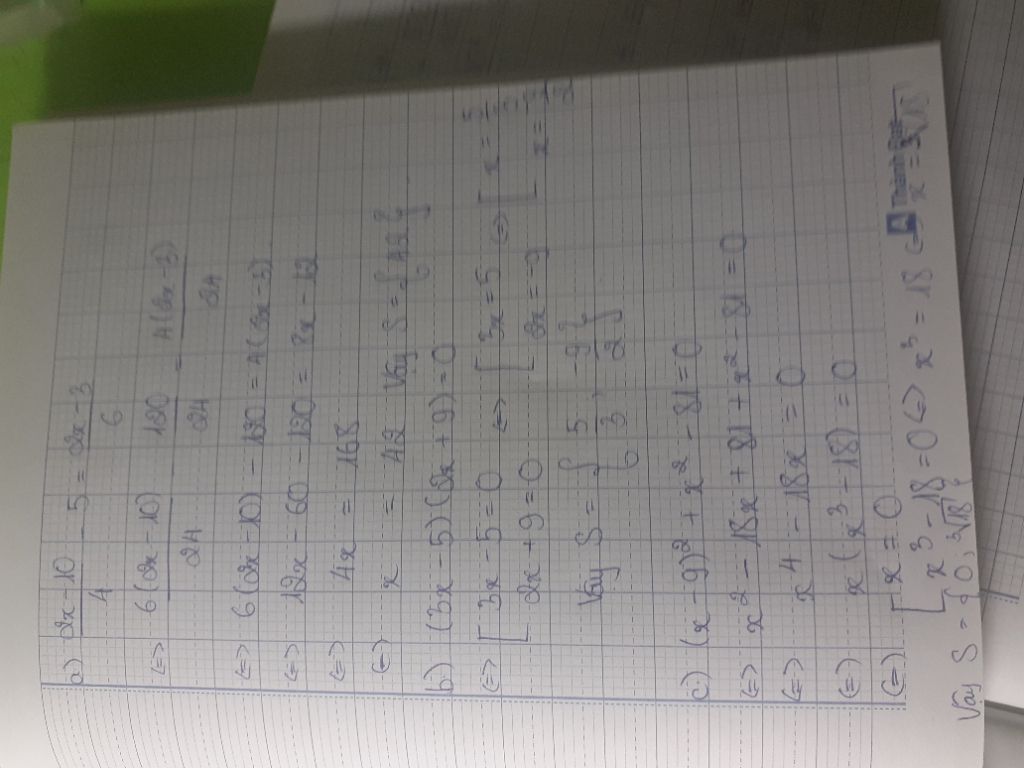 a) (2x-10)/4 - 5 = (2x-3)/6
(=) 6(2x-10)/24 - 120/24 = 4(2x-3)/24
(=) 6(2x-10) - 120 = 4(2x-3)
(=) 12x - 60 - 120 = 8x - 12
(=) 4x = 168
(=) x = 42 Vay S = { 42 }
b) (3x-5)(2x+9) = 0
(=) [ 3x-5 = 0 (=) [ 3x = 5 (=) [ x = 5/3
2x+9 = 0 2x = -9 x = -9/2
Vay S = { 5/3 , -9/2 }
c) (x-9)² + x² - 81 = 0
(=) x² - 18x + 81 + x² - 81 = 0
(=) x4 - 18x = 0
(=) x(x³ - 18) = 0
(=) [ x = 0
x³ - 18 = 0 (=) x³ = 18 (=) x = 3√18
Vay S = { 0, 3√18 }